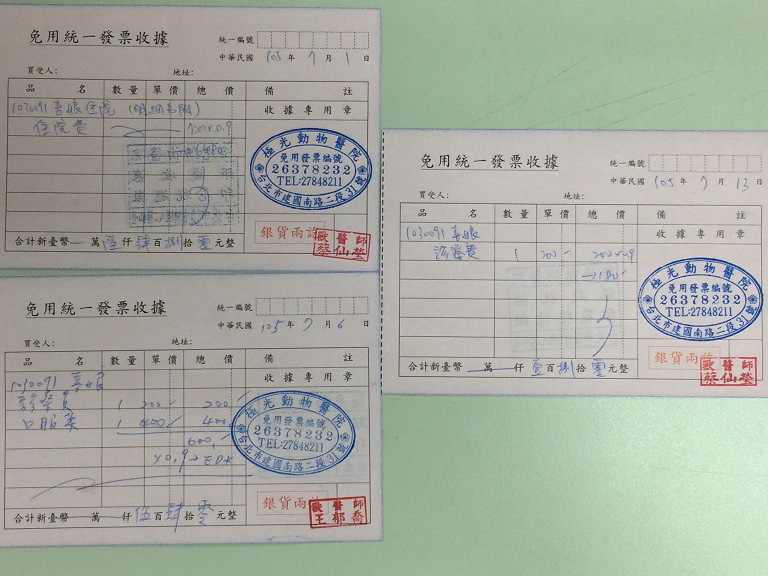 免用統一發票收據
統一編號
中華民國 105 年 7 月 1 日
買受人: 地址:
品 名 數量 單價 總 價 備 註
1030091 喜娘 住院
收據專用章
住院費
極光動物醫院
免用發票編號
26378232
TEL:27848211
台北市建國南路二段31號
銀貨兩訖
獸醫師
蔡仙瑩
合計新臺幣 萬 仟 百捌拾零元整
免用統一發票收據
統一編號
中華民國 105 年 7 月 6 日
買受人: 地址:
品 名 數量 單價 總 價 備 註
1030091 喜娘
收據專用章
診察費 1 200 200
口服藥 1 400 400
600
x0.9
極光動物醫院
免用發票編號
26378232
TEL:27848211
台北市建國南路二段31號
銀貨兩訖
獸醫師
王郁喬
合計新臺幣 萬 仟伍百肆拾零元整
免用統一發票收據
統一編號
中華民國 105 年 7 月 13 日
買受人: 地址:
品 名 數量 單價 總 價 備 註
1030091 喜娘
收據專用章
診察費 1 200 200x0.9
180
極光動物醫院
免用發票編號
26378232
TEL:27848211
台北市建國南路二段31號
銀貨兩訖
獸醫師
蔡仙瑩
合計新臺幣 萬 仟壹百捌拾零元整